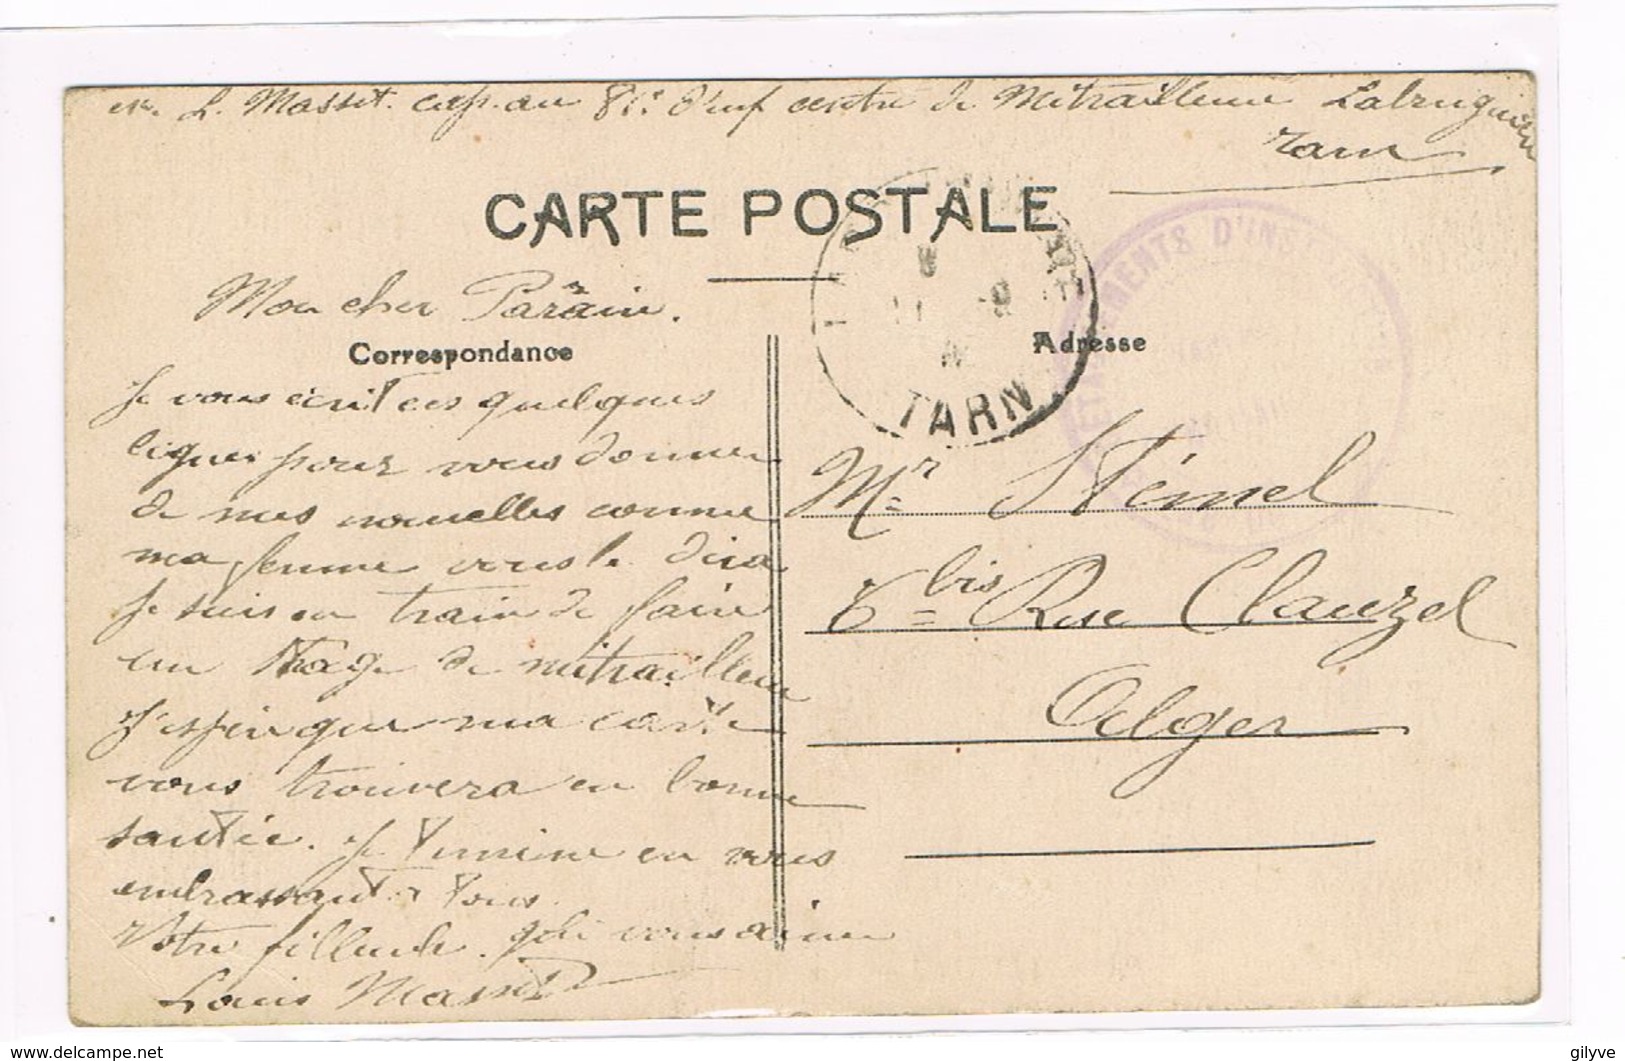 L. Masset. cap. au 81e d'inf centre de Mitrailleuse Labruguière
Tarn
CARTE POSTALE
TARN
Mon cher Parain.
Correspondance
Adresse
Je vous écrit ces quelques
lignes pour vous donner
de mes nouvelles comme
ma femme vous le dira
Je suis en train de faire
un stage de mitrailleuse
J'espère que ma carte
vous trouvera en bonne
santée. Je termine en vous
embrassant à tous.
Votre filleule. qui vous aime
Louis Masset
Mr Stémel
6 bis Rue Clauzel
Alger
delcampe.net
gilyve